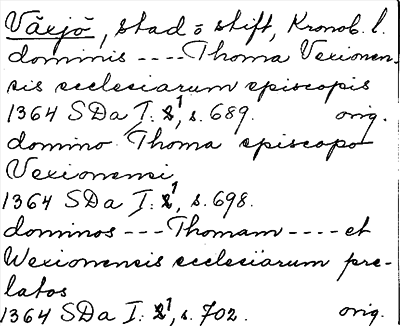 Växjö, stad o stift, Kronob. l.
dominis ---- Thoma Vexionen-
sis ecclesiarum episcopis
1364 SDa I: 2¹, s. 689. orig.
domino Thoma episcopo
Vexionensi
1364 SDa I: 2¹, s. 698.
dominos --- Thomam ---- et
Wexionensis ecclesiarum pre-
latos
1364 SDa I: 2¹, s. 702. orig.